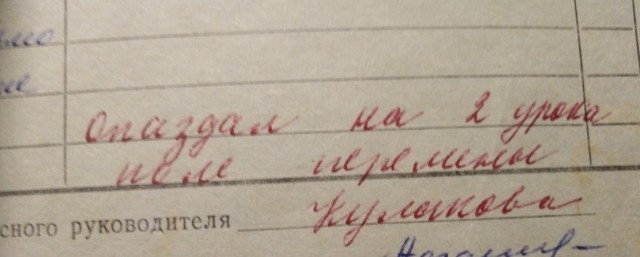 опаздал на 2 урока
поле перемены
сного руководителя Кулакова